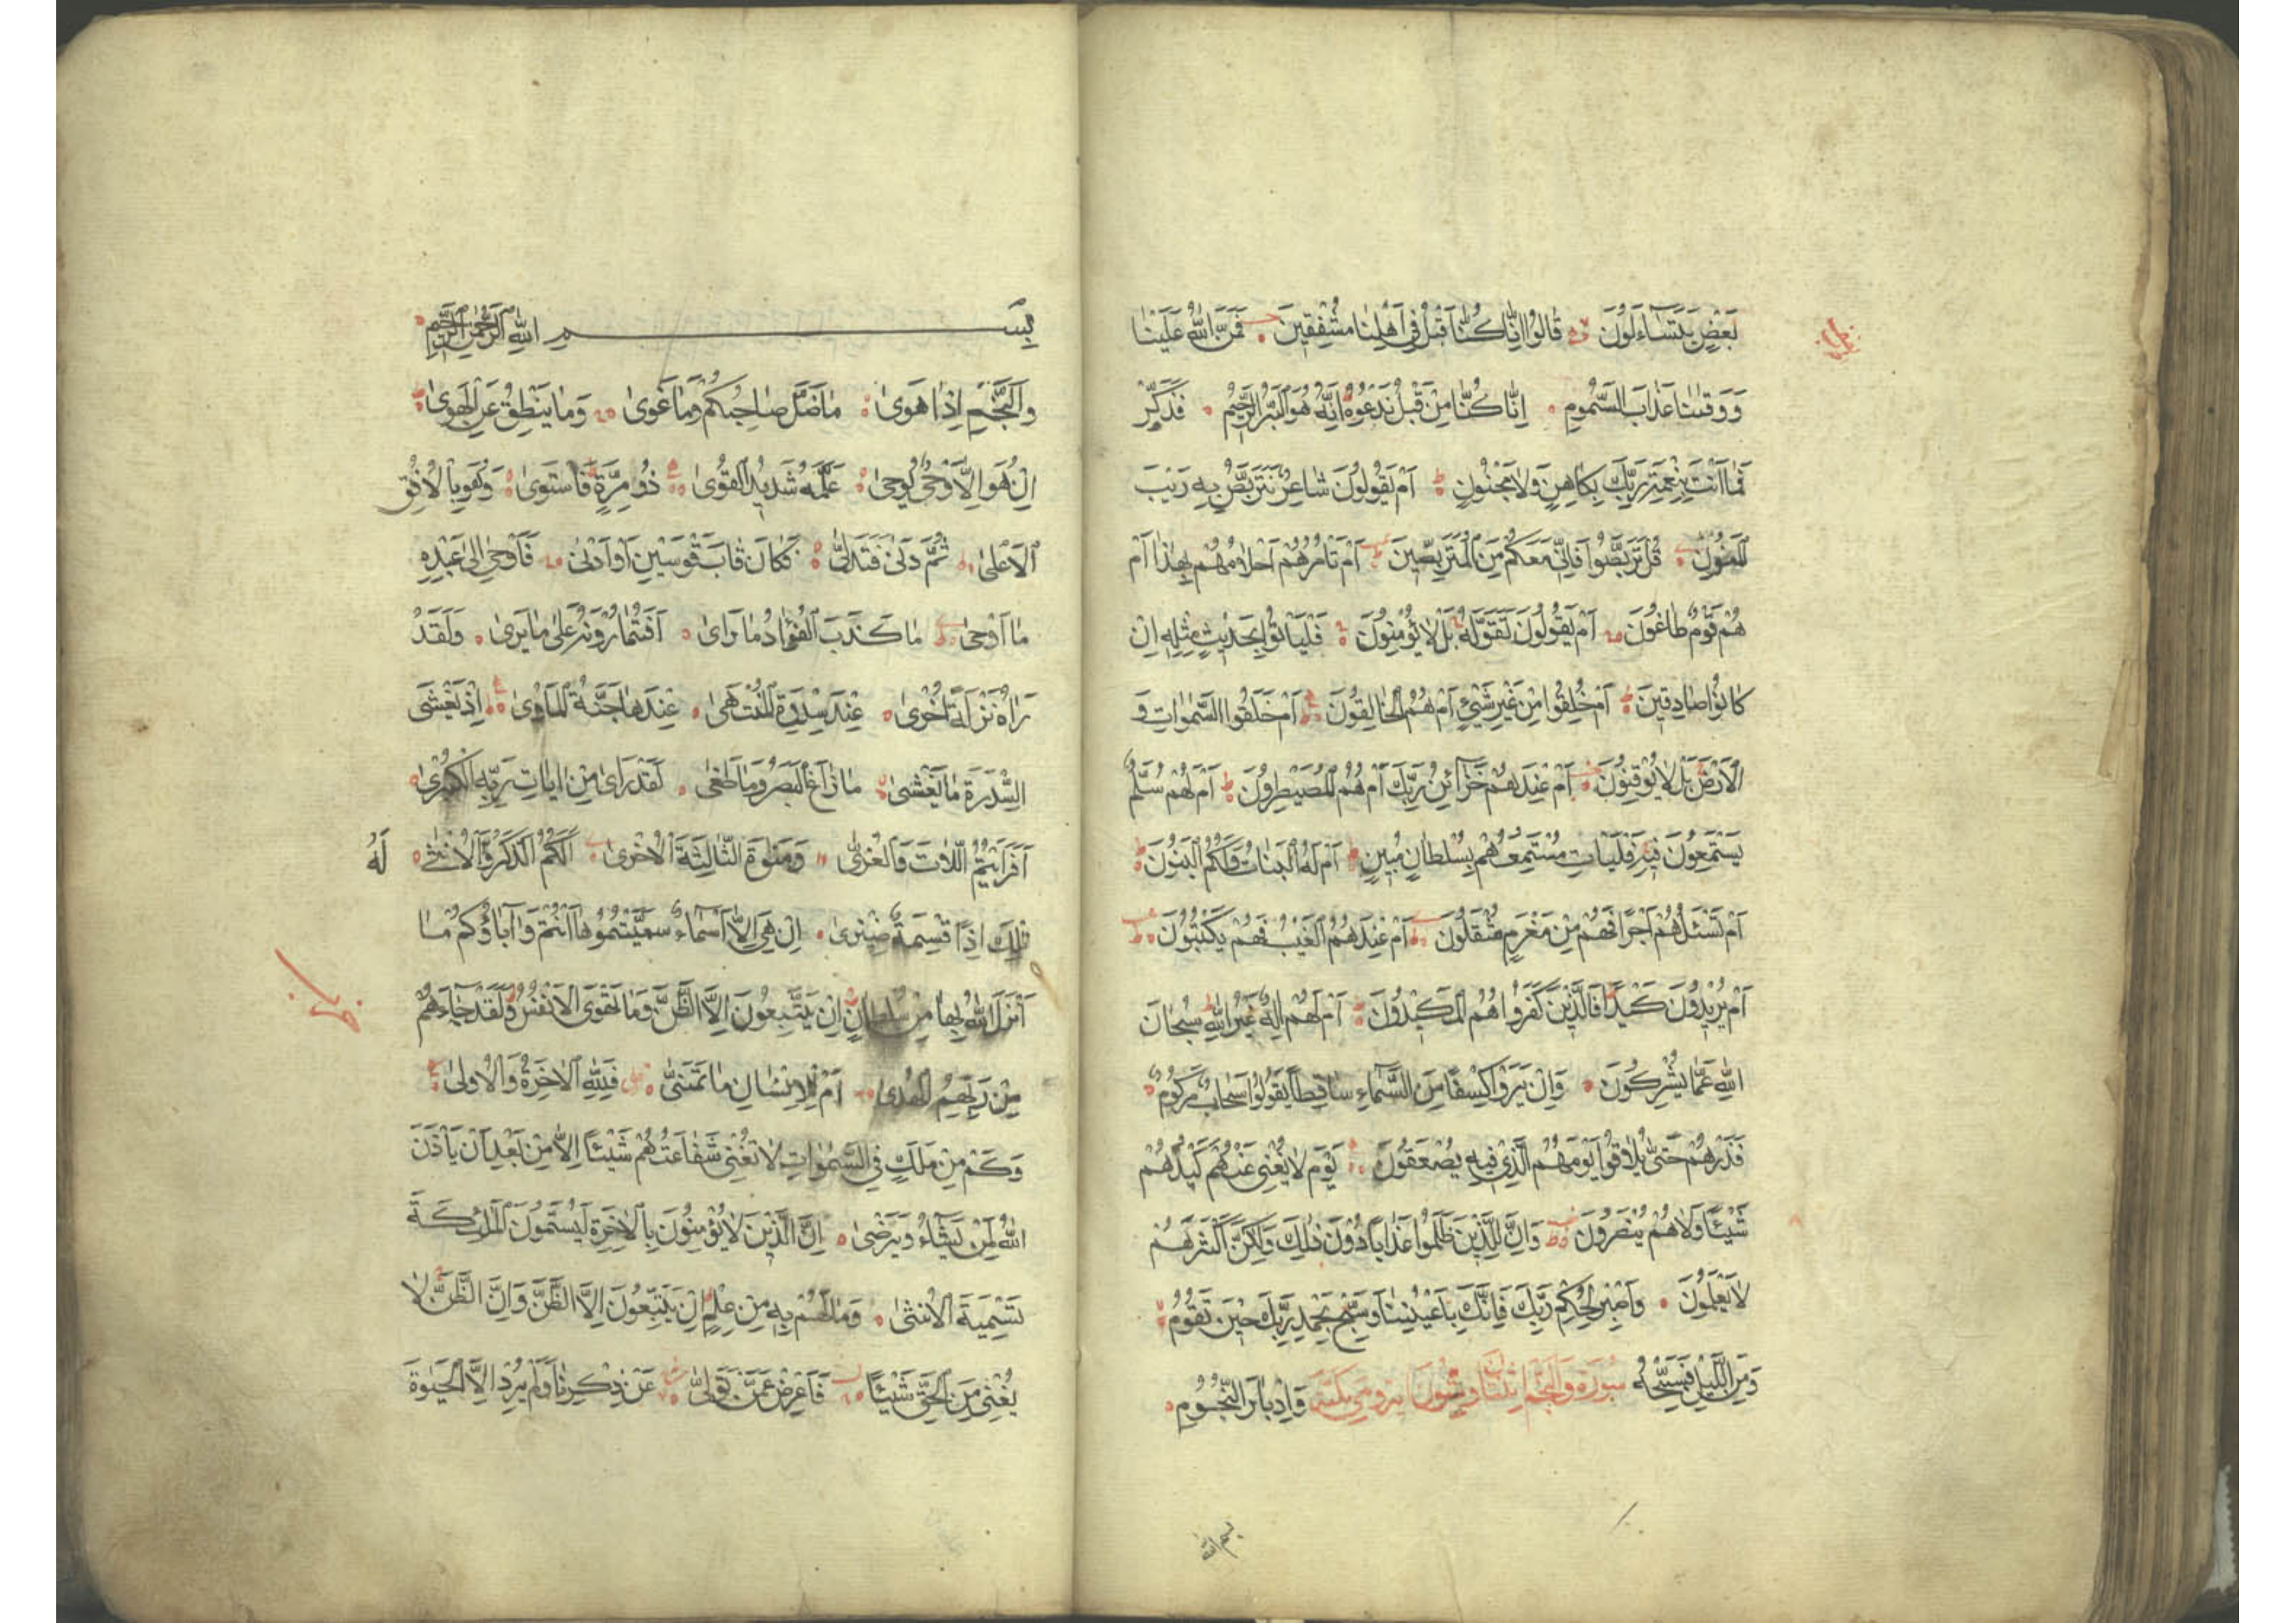 بَعْضٍ يَتَسَآءَلُونَ قَالُوا اِنَّا كُنَّا قَبْلُ فِى اَهْلِنَا مُشْفِقِينَ فَمَنَّ اللّٰهُ عَلَيْنَا
وَوَقٰىنَا عَذَابَ السَّمُومِ اِنَّا كُنَّا مِنْ قَبْلُ نَدْعُوهُ اِنَّهُ هُوَ الْبَرُّ الرَّحِيمُ فَذَكِّرْ
فَمَا اَنْتَ بِنِعْمَةِ رَبِّكَ بِكَاهِنٍ وَلَا مَجْنُونٍ اَمْ يَقُولُونَ شَاعِرٌ نَتَرَبَّصُ بِهِ رَيْبَ
الْمَنُونِ قُلْ تَرَبَّصُوا فَاِنِّى مَعَكُمْ مِنَ الْمُتَرَبِّصِينَ اَمْ تَاْمُرُهُمْ اَحْلَامُهُمْ بِهٰذَا اَمْ
هُمْ قَوْمٌ طَاغُونَ اَمْ يَقُولُونَ تَقَوَّلَهُ بَلْ لَا يُؤْمِنُونَ فَلْيَاْتُوا بِحَدِيثٍ مِثْلِهِ اِنْ
كَانُوا صَادِقِينَ اَمْ خُلِقُوا مِنْ غَيْرِ شَيْءٍ اَمْ هُمُ الْخَالِقُونَ اَمْ خَلَقُوا السَّمٰوَاتِ وَ
الْاَرْضَ بَلْ لَا يُوقِنُونَ اَمْ عِنْدَهُمْ خَزَآئِنُ رَبِّكَ اَمْ هُمُ الْمُصَيْطِرُونَ اَمْ لَهُمْ سُلَّمٌ
يَسْتَمِعُونَ فِيهِ فَلْيَاْتِ مُسْتَمِعُهُمْ بِسُلْطَانٍ مُبِينٍ اَمْ لَهُ الْبَنَاتُ وَلَكُمُ الْبَنُونَ
اَمْ تَسْئَلُهُمْ اَجْرًا فَهُمْ مِنْ مَغْرَمٍ مُثْقَلُونَ اَمْ عِنْدَهُمُ الْغَيْبُ فَهُمْ يَكْتُبُونَ
اَمْ يُرِيدُونَ كَيْدًا فَالَّذِينَ كَفَرُوا هُمُ الْمَكِيدُونَ اَمْ لَهُمْ اِلٰهٌ غَيْرُ اللّٰهِ سُبْحَانَ
اللّٰهِ عَمَّا يُشْرِكُونَ وَاِنْ يَرَوْا كِسْفًا مِنَ السَّمَآءِ سَاقِطًا يَقُولُوا سَحَابٌ مَرْكُومٌ
فَذَرْهُمْ حَتّٰى يُلَاقُوا يَوْمَهُمُ الَّذِى فِيهِ يُصْعَقُونَ يَوْمَ لَا يُغْنِى عَنْهُمْ كَيْدُهُمْ
شَيْئًا وَلَا هُمْ يُنْصَرُونَ وَاِنَّ لِلَّذِينَ ظَلَمُوا عَذَابًا دُونَ ذٰلِكَ وَلٰكِنَّ اَكْثَرَهُمْ
لَا يَعْلَمُونَ وَاصْبِرْ لِحُكْمِ رَبِّكَ فَاِنَّكَ بِاَعْيُنِنَا وَسَبِّحْ بِحَمْدِ رَبِّكَ حِينَ تَقُومُ
وَمِنَ اللَّيْلِ فَسَبِّحْهُ سُورَة وَالنَّجْم اثنتان وستون اية وهي مكية وَاِدْبَارَ النُّجُومِ
بسم الله
بِسْمِ اللّٰهِ الرَّحْمٰنِ الرَّحِيمِ
وَالنَّجْمِ اِذَا هَوٰى مَا ضَلَّ صَاحِبُكُمْ وَمَا غَوٰى وَمَا يَنْطِقُ عَنِ الْهَوٰى
اِنْ هُوَ اِلَّا وَحْىٌ يُوحٰى عَلَّمَهُ شَدِيدُ الْقُوٰى ذُو مِرَّةٍ فَاسْتَوٰى وَهُوَ بِالْاُفُقِ
الْاَعْلٰى ثُمَّ دَنٰى فَتَدَلّٰى فَكَانَ قَابَ قَوْسَيْنِ اَوْ اَدْنٰى فَاَوْحٰى اِلٰى عَبْدِهِ
مَا اَوْحٰى مَا كَذَبَ الْفُؤَادُ مَا رَاٰى اَفَتُمَارُونَهُ عَلٰى مَا يَرٰى وَلَقَدْ
رَاٰهُ نَزْلَةً اُخْرٰى عِنْدَ سِدْرَةِ الْمُنْتَهٰى عِنْدَهَا جَنَّةُ الْمَاْوٰى اِذْ يَغْشَى
السِّدْرَةَ مَا يَغْشٰى مَا زَاغَ الْبَصَرُ وَمَا طَغٰى لَقَدْ رَاٰى مِنْ اٰيَاتِ رَبِّهِ الْكُبْرٰى
اَفَرَاَيْتُمُ اللَّاتَ وَالْعُزّٰى وَمَنٰوةَ الثَّالِثَةَ الْاُخْرٰى اَلَكُمُ الذَّكَرُ وَلَهُ الْاُنْثٰى
تِلْكَ اِذًا قِسْمَةٌ ضِيزٰى اِنْ هِىَ اِلَّا اَسْمَآءٌ سَمَّيْتُمُوهَا اَنْتُمْ وَاٰبَاؤُكُمْ مَا
اَنْزَلَ اللّٰهُ بِهَا مِنْ سُلْطَانٍ اِنْ يَتَّبِعُونَ اِلَّا الظَّنَّ وَمَا تَهْوَى الْاَنْفُسُ وَلَقَدْ جَآءَهُمْ
مِنْ رَبِّهِمُ الْهُدٰى اَمْ لِلْاِنْسَانِ مَا تَمَنّٰى فَلِلّٰهِ الْاٰخِرَةُ وَالْاُولٰى
وَكَمْ مِنْ مَلَكٍ فِى السَّمٰوَاتِ لَا تُغْنِى شَفَاعَتُهُمْ شَيْئًا اِلَّا مِنْ بَعْدِ اَنْ يَاْذَنَ
اللّٰهُ لِمَنْ يَشَآءُ وَيَرْضٰى اِنَّ الَّذِينَ لَا يُؤْمِنُونَ بِالْاٰخِرَةِ لَيُسَمُّونَ الْمَلٰئِكَةَ
تَسْمِيَةَ الْاُنْثٰى وَمَا لَهُمْ بِهِ مِنْ عِلْمٍ اِنْ يَتَّبِعُونَ اِلَّا الظَّنَّ وَاِنَّ الظَّنَّ لَا
يُغْنِى مِنَ الْحَقِّ شَيْئًا فَاَعْرِضْ عَمَّنْ تَوَلّٰى عَنْ ذِكْرِنَا وَلَمْ يُرِدْ اِلَّا الْحَيٰوةَ